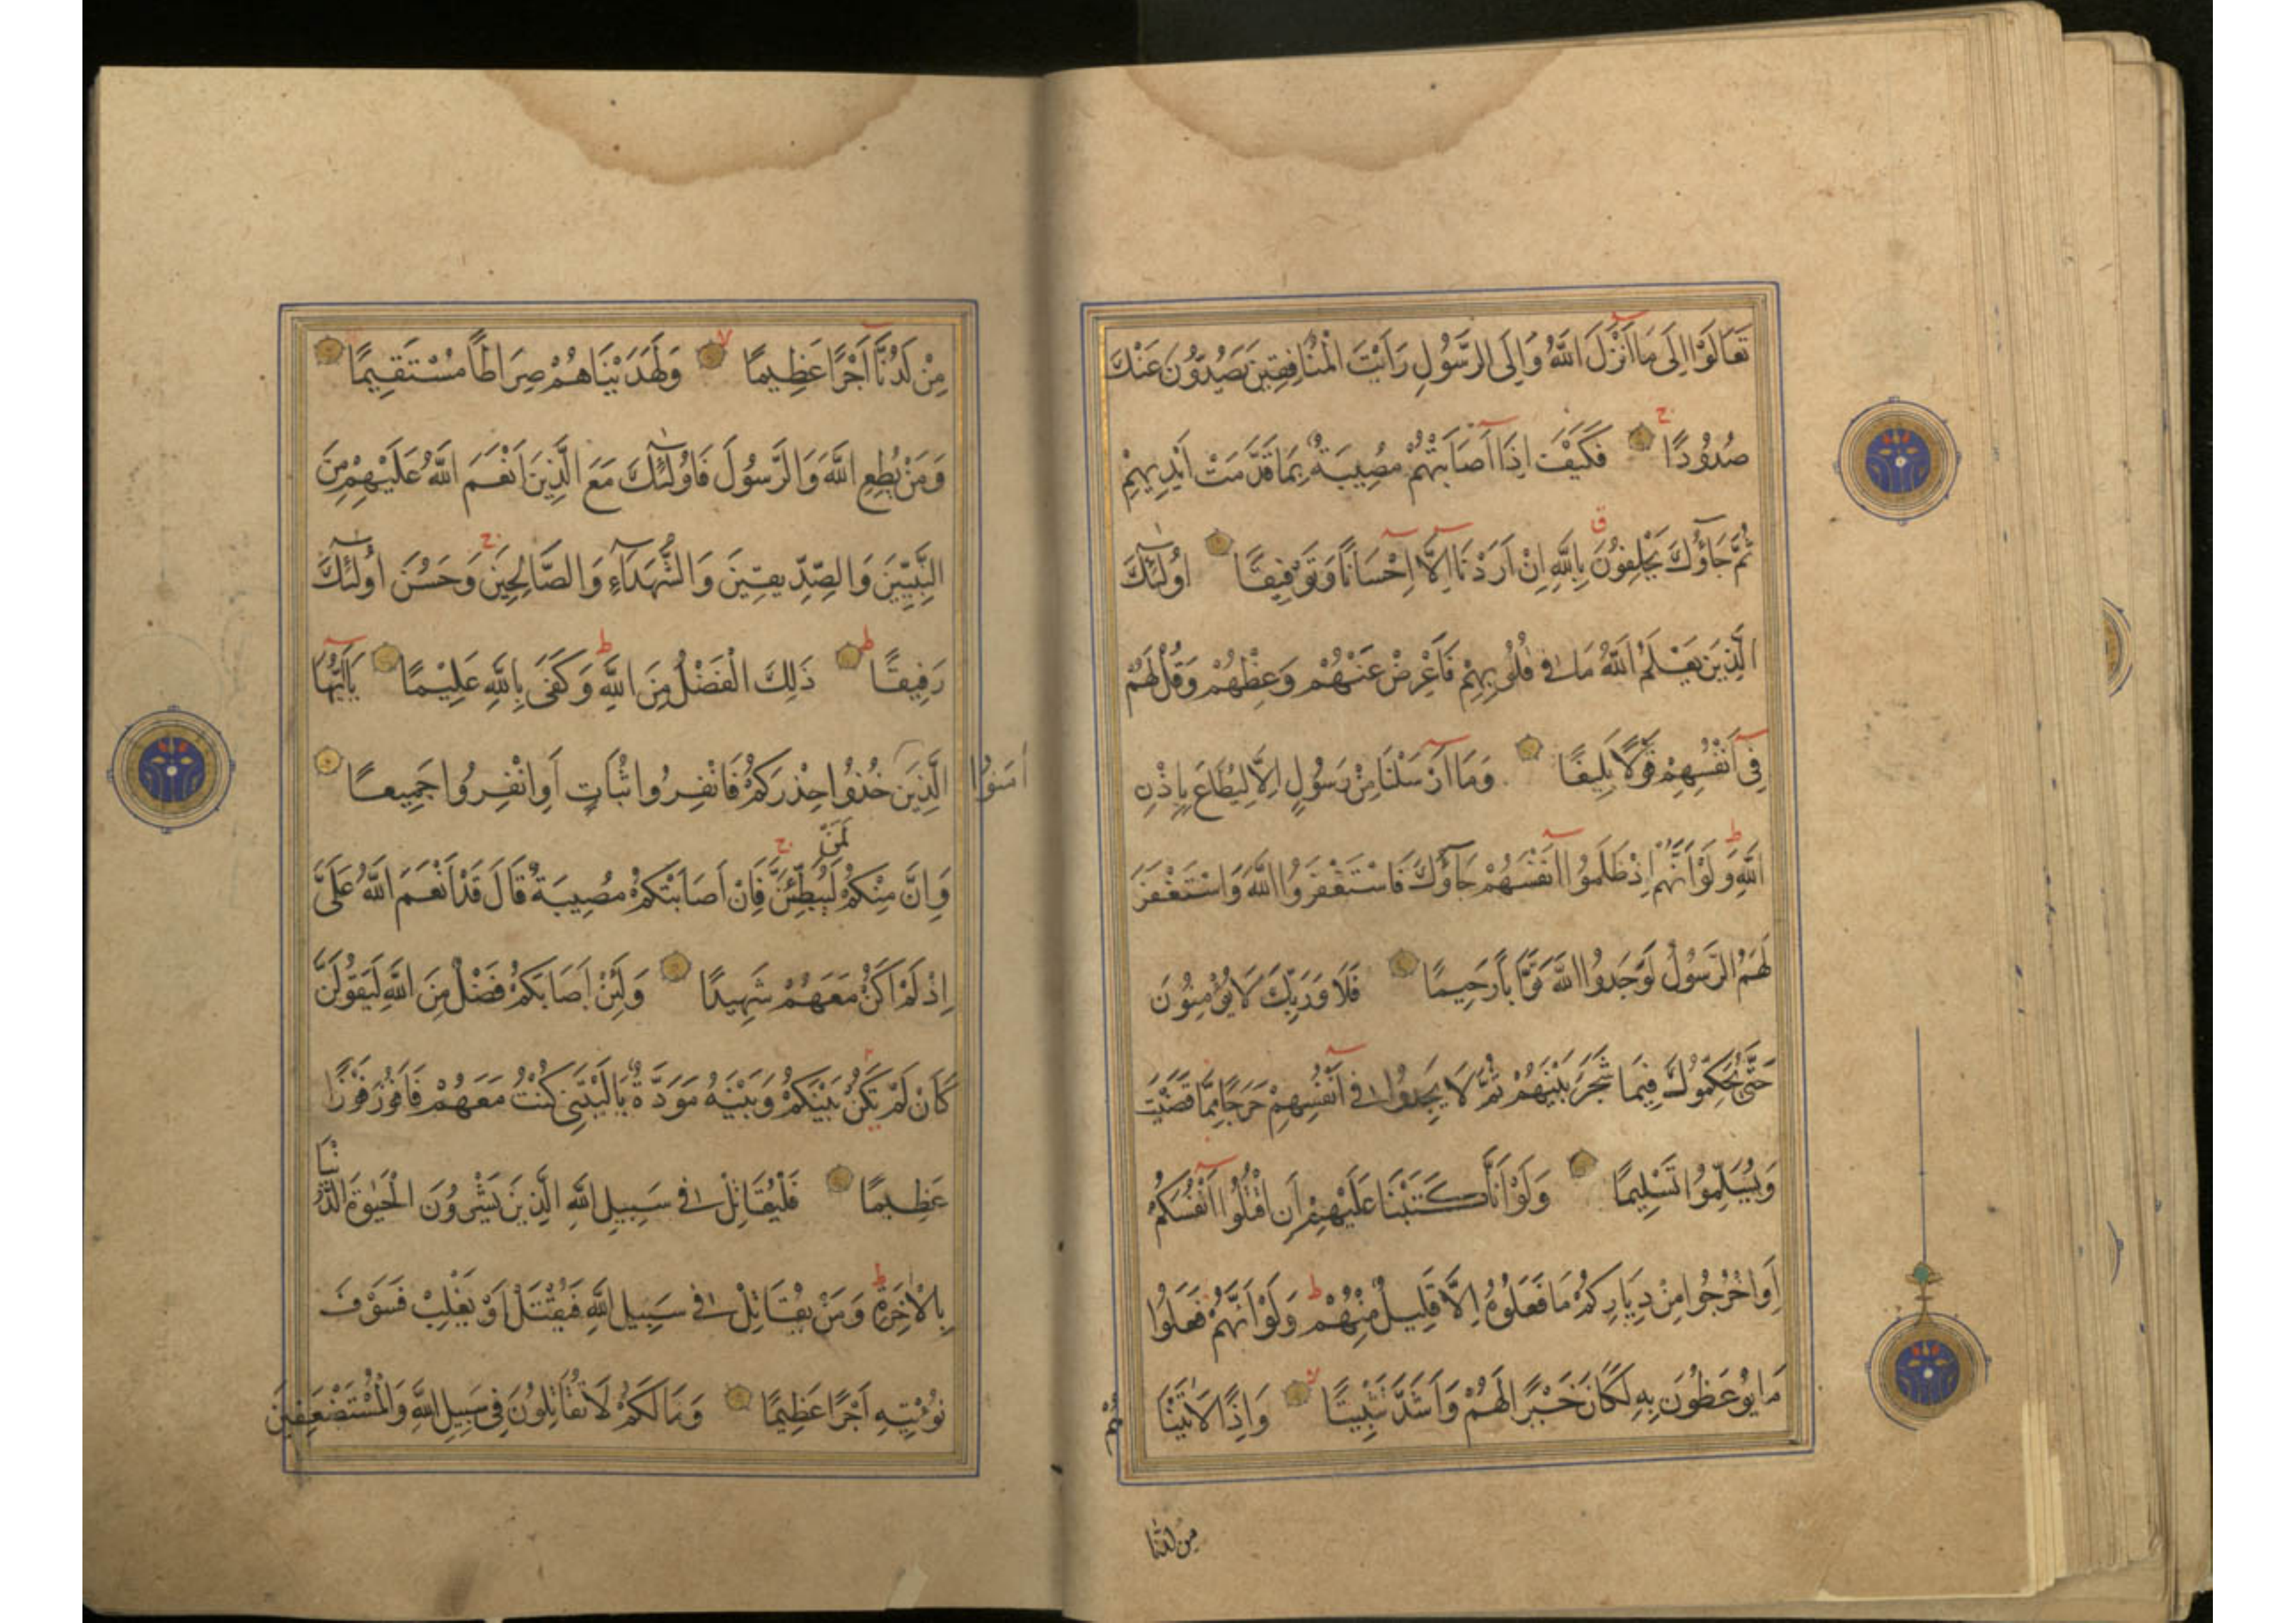 تَعَالَوْا اِلَى مَا اَنْزَلَ اللّٰهُ وَاِلَى الرَّسُولِ رَاَيْتَ الْمُنَافِقِينَ يَصُدُّونَ عَنْكَ
صُدُودًا فَكَيْفَ اِذَا اَصَابَتْهُمْ مُصِيبَةٌ بِمَا قَدَّمَتْ اَيْدِيهِمْ
ثُمَّ جَآؤُكَ يَحْلِفُونَ بِاللّٰهِ اِنْ اَرَدْنَا اِلَّا اِحْسَانًا وَتَوْفِيقًا اُولٰٓئِكَ
الَّذِينَ يَعْلَمُ اللّٰهُ مَا فِي قُلُوبِهِمْ فَاَعْرِضْ عَنْهُمْ وَعِظْهُمْ وَقُلْ لَهُمْ
فِي اَنْفُسِهِمْ قَوْلًا بَلِيغًا وَمَا اَرْسَلْنَا مِنْ رَسُولٍ اِلَّا لِيُطَاعَ بِاِذْنِ
اللّٰهِ وَلَوْ اَنَّهُمْ اِذْ ظَلَمُوا اَنْفُسَهُمْ جَآؤُكَ فَاسْتَغْفَرُوا اللّٰهَ وَاسْتَغْفَرَ
لَهُمُ الرَّسُولُ لَوَجَدُوا اللّٰهَ تَوَّابًا رَحِيمًا فَلَا وَرَبِّكَ لَا يُؤْمِنُونَ
حَتَّى يُحَكِّمُوكَ فِيمَا شَجَرَ بَيْنَهُمْ ثُمَّ لَا يَجِدُوا فِي اَنْفُسِهِمْ حَرَجًا مِمَّا قَضَيْتَ
وَيُسَلِّمُوا تَسْلِيمًا وَلَوْ اَنَّا كَتَبْنَا عَلَيْهِمْ اَنِ اقْتُلُوا اَنْفُسَكُمْ
اَوِ اخْرُجُوا مِنْ دِيَارِكُمْ مَا فَعَلُوهُ اِلَّا قَلِيلٌ مِنْهُمْ وَلَوْ اَنَّهُمْ فَعَلُوا
مَا يُوعَظُونَ بِهِ لَكَانَ خَيْرًا لَهُمْ وَاَشَدَّ تَثْبِيتًا وَاِذًا لَاٰتَيْنَا
هُمْ
من لدنا
مِنْ لَدُنَّا اَجْرًا عَظِيمًا وَلَهَدَيْنَاهُمْ صِرَاطًا مُسْتَقِيمًا
وَمَنْ يُطِعِ اللّٰهَ وَالرَّسُولَ فَاُولٰٓئِكَ مَعَ الَّذِينَ اَنْعَمَ اللّٰهُ عَلَيْهِمْ مِنَ
النَّبِيِّينَ وَالصِّدِّيقِينَ وَالشُّهَدَآءِ وَالصَّالِحِينَ وَحَسُنَ اُولٰٓئِكَ
رَفِيقًا ذَلِكَ الْفَضْلُ مِنَ اللّٰهِ وَكَفَى بِاللّٰهِ عَلِيمًا يَا اَيُّهَا
الَّذِينَ خُذُوا حِذْرَكُمْ فَانْفِرُوا ثُبَاتٍ اَوِ انْفِرُوا جَمِيعًا
اٰمَنُوا
لَمَنْ
وَاِنَّ مِنْكُمْ لَيُبَطِّئَنَّ فَاِنْ اَصَابَتْكُمْ مُصِيبَةٌ قَالَ قَدْ اَنْعَمَ اللّٰهُ عَلَيَّ
اِذْ لَمْ اَكُنْ مَعَهُمْ شَهِيدًا وَلَئِنْ اَصَابَكُمْ فَضْلٌ مِنَ اللّٰهِ لَيَقُولَنَّ
كَاَنْ لَمْ يَكُنْ بَيْنَكُمْ وَبَيْنَهُ مَوَدَّةٌ يَا لَيْتَنِي كُنْتُ مَعَهُمْ فَاَفُوزَ فَوْزًا
عَظِيمًا فَلْيُقَاتِلْ فِي سَبِيلِ اللّٰهِ الَّذِينَ يَشْرُونَ الْحَيٰوةَ الدُّنْيَا
بِالْاٰخِرَةِ وَمَنْ يُقَاتِلْ فِي سَبِيلِ اللّٰهِ فَيُقْتَلْ اَوْ يَغْلِبْ فَسَوْفَ
نُؤْتِيهِ اَجْرًا عَظِيمًا وَمَا لَكُمْ لَا تُقَاتِلُونَ فِي سَبِيلِ اللّٰهِ وَالْمُسْتَضْعَفِينَ